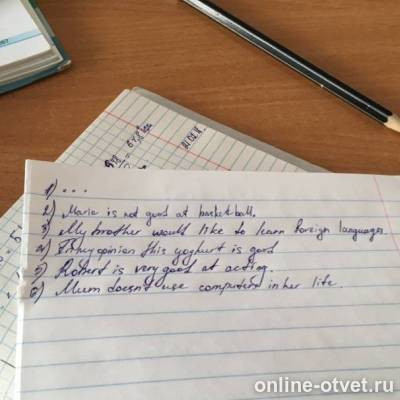 1) ...
2) Maria is not good at basketball.
3) My brother would like to learn foreign languages
4) In my opinion this yoghurt is good
5) Robert is very good at acting.
6) Mum doesn't use computers in her life.
online-otvet.ru